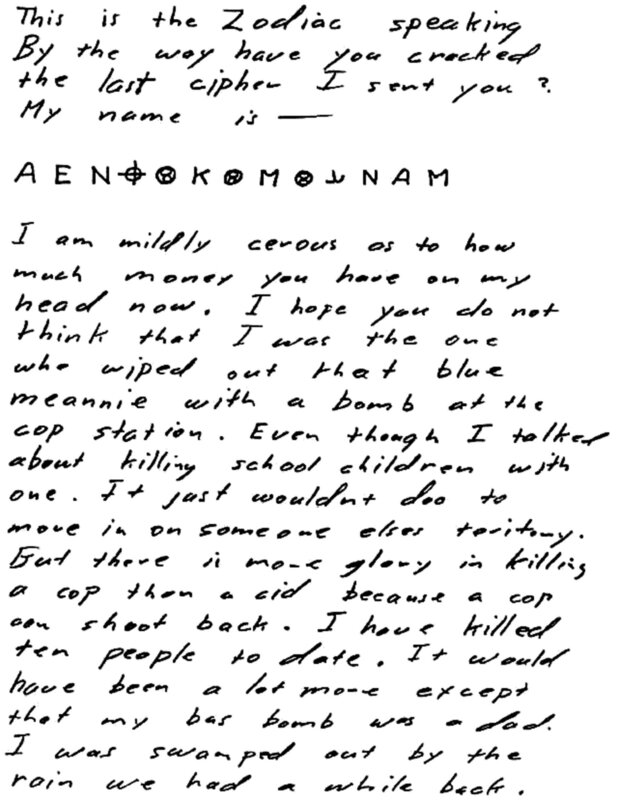 This is the Zodiac speaking
By the way have you cracked
the last cipher I sent you ?
My name is —
A E N ⌖ ⑧ K ⑧ M ⑧ N A M
I am mildly cerous as to how
much money you have on my
head now. I hope you do not
think that I was the one
who wiped out that blue
meannie with a bomb at the
cop station. Even though I talked
about killing school children with
one. It just wouldnt doo to
move in on someone elses teritory.
But there is more glory in killing
a cop than a cid because a cop
can shoot back. I have killed
ten people to date. It would
have been a lot more except
that my bus bomb was a dud.
I was swamped out by the
rain we had a while back.